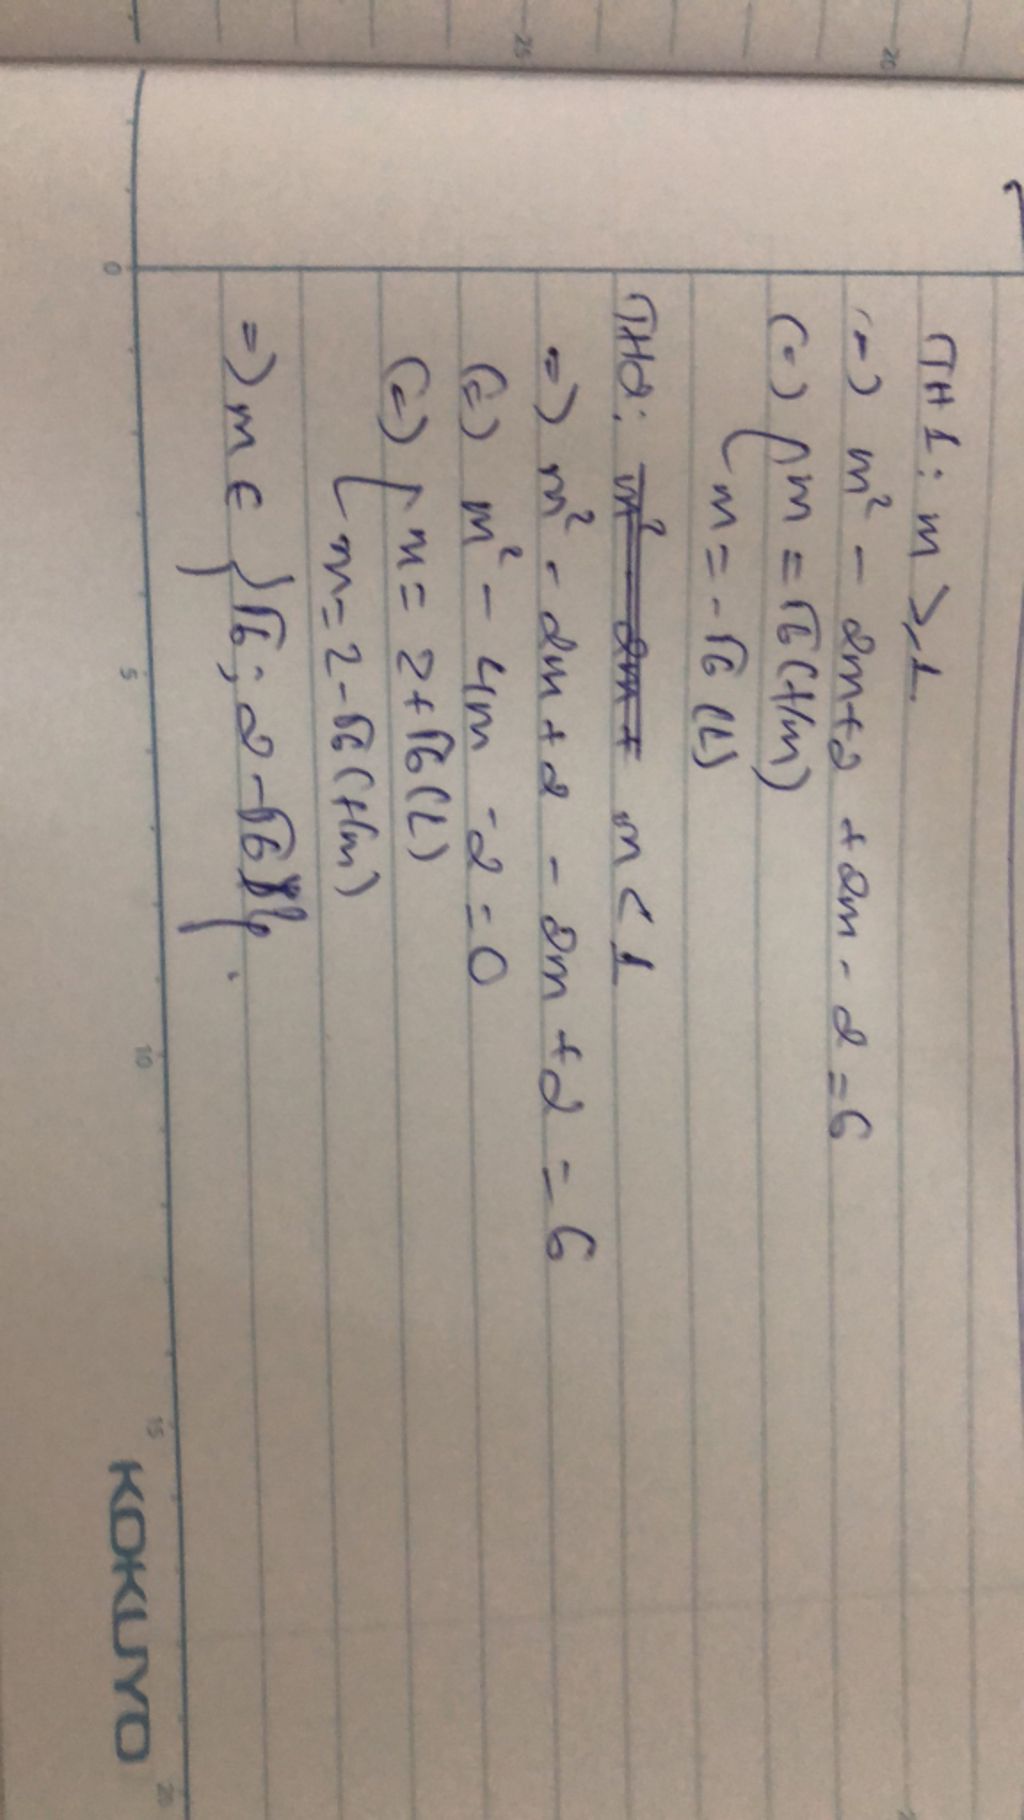 TH1: m ≥ 1
(=) m² - 2m+2 +2m - 2 = 6
(=) [ m = √6 (t/m)
[ m = -√6 (L)
TH2: m² - 2m + m < 1
=) m² - 2m + 2 - 2m + 2 = 6
(=) m² - 4m - 2 = 0
(=) [ m = 2+√6 (L)
[ m = 2-√6 (t/m)
=) m ∈ {√6; 2-√6}.
0
5
10
15
20
KOKUYO
25
20